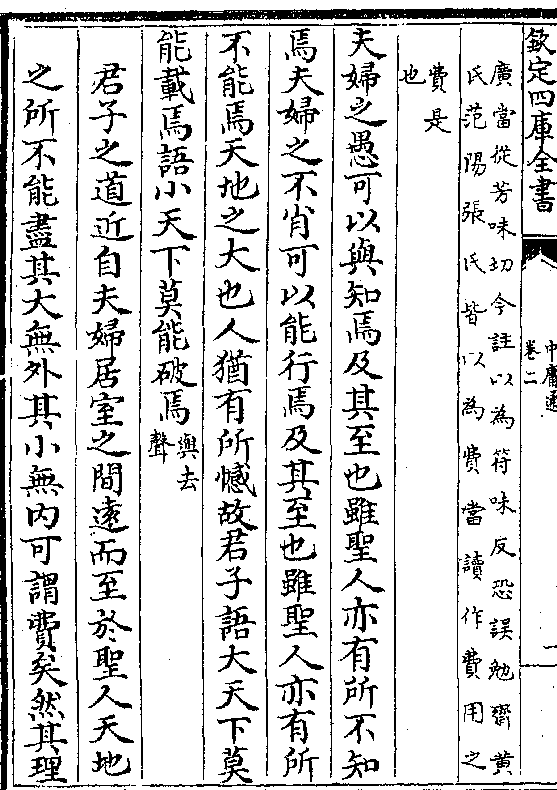 欽定四庫全書
中庸通
卷二
廣當從芳味切今註以為符味反恐誤勉齋黄
氏范陽張氏皆以為費當讀作費用之
費是
也
夫婦之愚可以與知焉及其至也雖聖人亦有所不知
焉夫婦之不肖可以能行焉及其至也雖聖人亦有所
不能焉天地之大也人猶有所憾故君子語大天下莫
能載焉語小天下莫能破焉與去
聲
君子之道近自夫婦居室之間遠而至於聖人天地
之所不能盡其大無外其小無内可謂費矣然其理